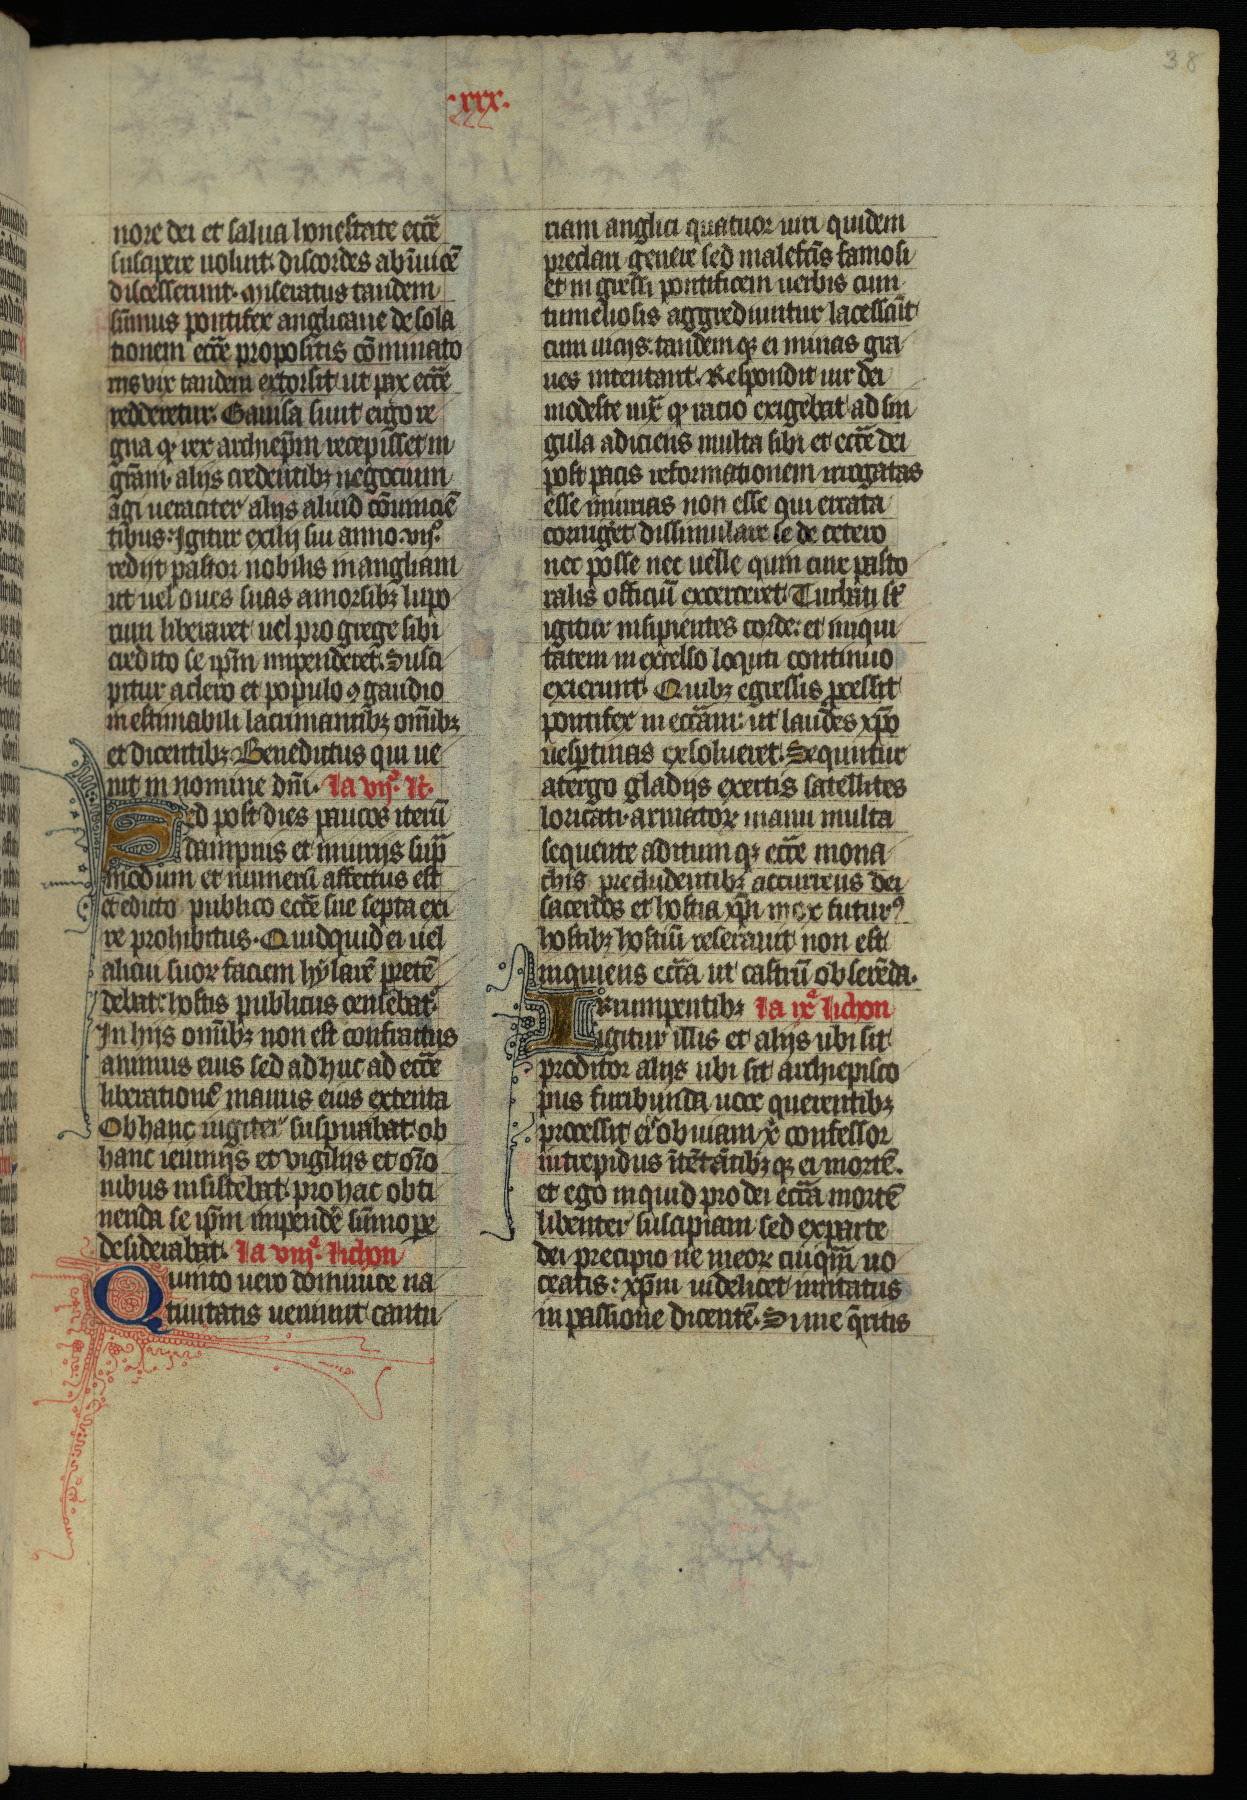 38
.xxx.
nore dei et salua honestate ecc̄e
suscipere uoluit. discordes abīuicē
discesserunt. Miseratus tandem
sūmus pontifex anglicane desola
tionem ecc̄e propositis cōminato
riis vix tandem extorsit ut pax ecc̄e
redderetur. Gauisa sunt ergo re
gna qꝫ rex archiep̄m recepisset in
gr̄am. alijs credentibꝫ negocium
agi ueraciter alijs aliud cōuiciē
tibus: Igitur exilij sui anno .vijº.
redijt pastor nobilis in angliam
ut uel oues suas a morsibꝫ lupo
rum liberaret uel pro grege sibi
credito se ip̄m impenderet. Susci
pitur a clero et populo ꝯ gaudio
inestimabili lacrimantibꝫ om̄ibꝫ
et dicentibꝫ. Benedictus qui ue
nit in nomine dn̄i. La vijª. R.
Sed post dies paucos iterū
dampnis et iniurijs sup̄
modum et numerū affectus est
et edicto publico ecc̄e sue septa exi
re prohibitus. Quidquid ei uel
alicui suoꝝ faciem hylarē pretē
debat: hostis publicus censebatᷣ.
In hijs om̄ibꝫ non est confractus
animus eius sed adhuc ad ecc̄e
liberationē manus eius extenta
Ob hanc iugiter suspirabat. ob
hanc ieiunijs et vigilijs et or̄o
nibus insistebat. pro hac obti
nenda se ip̄m impendē sūmope
desiderabat. La viijª. Lichon
Quinto uero dominice na
tiuitatis ueniunt cantu
riam anglici quatuor uiri quidem
preclari genere sed malefc̄is famosi
et ingressi pontificem uerbis cun
tumeliosis aggrediuntur lacessc̄it
eum uicijs: tandem qꝫ ei minas gra
ues intentant. Respondit uir dei
modeste iux̄ qꝫ racio exigebat ad sin
gula adiciens multa sibi et ecc̄e dei
post pacis reformationem irrogatas
esse iniurias non esse qui errata
corriget dissimulare se de cetero
nec posse nec uelle quin cure pasto
ralis officiū excerceret. Turbati st̄
igitur insipientes corde: et iniqui
tatem in excelso loquti continuo
exierunt. Quibꝫ egressis ꝓcessit
pontifex in ecc̄am: ut laudes xp̄o
uesꝑtinas exsolueret. Sequntur
atergo gladijs exertis satellites
loricati. armatoꝝ manu multa
sequente aditum qꝫ ecc̄e mona
chis precludentibꝫ accurrens dei
sacerdos et hostia xp̄i mox futurꝰ
hostibꝫ hostiū reserauit non est
inquiens ecc̄a ut castrū obserēda.
Irrumpentibꝫ La ixª Lichon
igitur illis et alijs ubi sit
proditor alijs ubi sit archiepisco
pus furibunda uoce querentibꝫ
processit ei obuiam x̄ confessor
intrepidus ītētātibꝫ qꝫ ei mortē.
et ego inquid pro dei ecc̄a mortē
libenter suscipiam sed exparte
dei precipio ne meoꝝ cuiqm̄ no
ceatis: xp̄m uidelicet imitatus
in passione dicentē. Si me q̄ritis